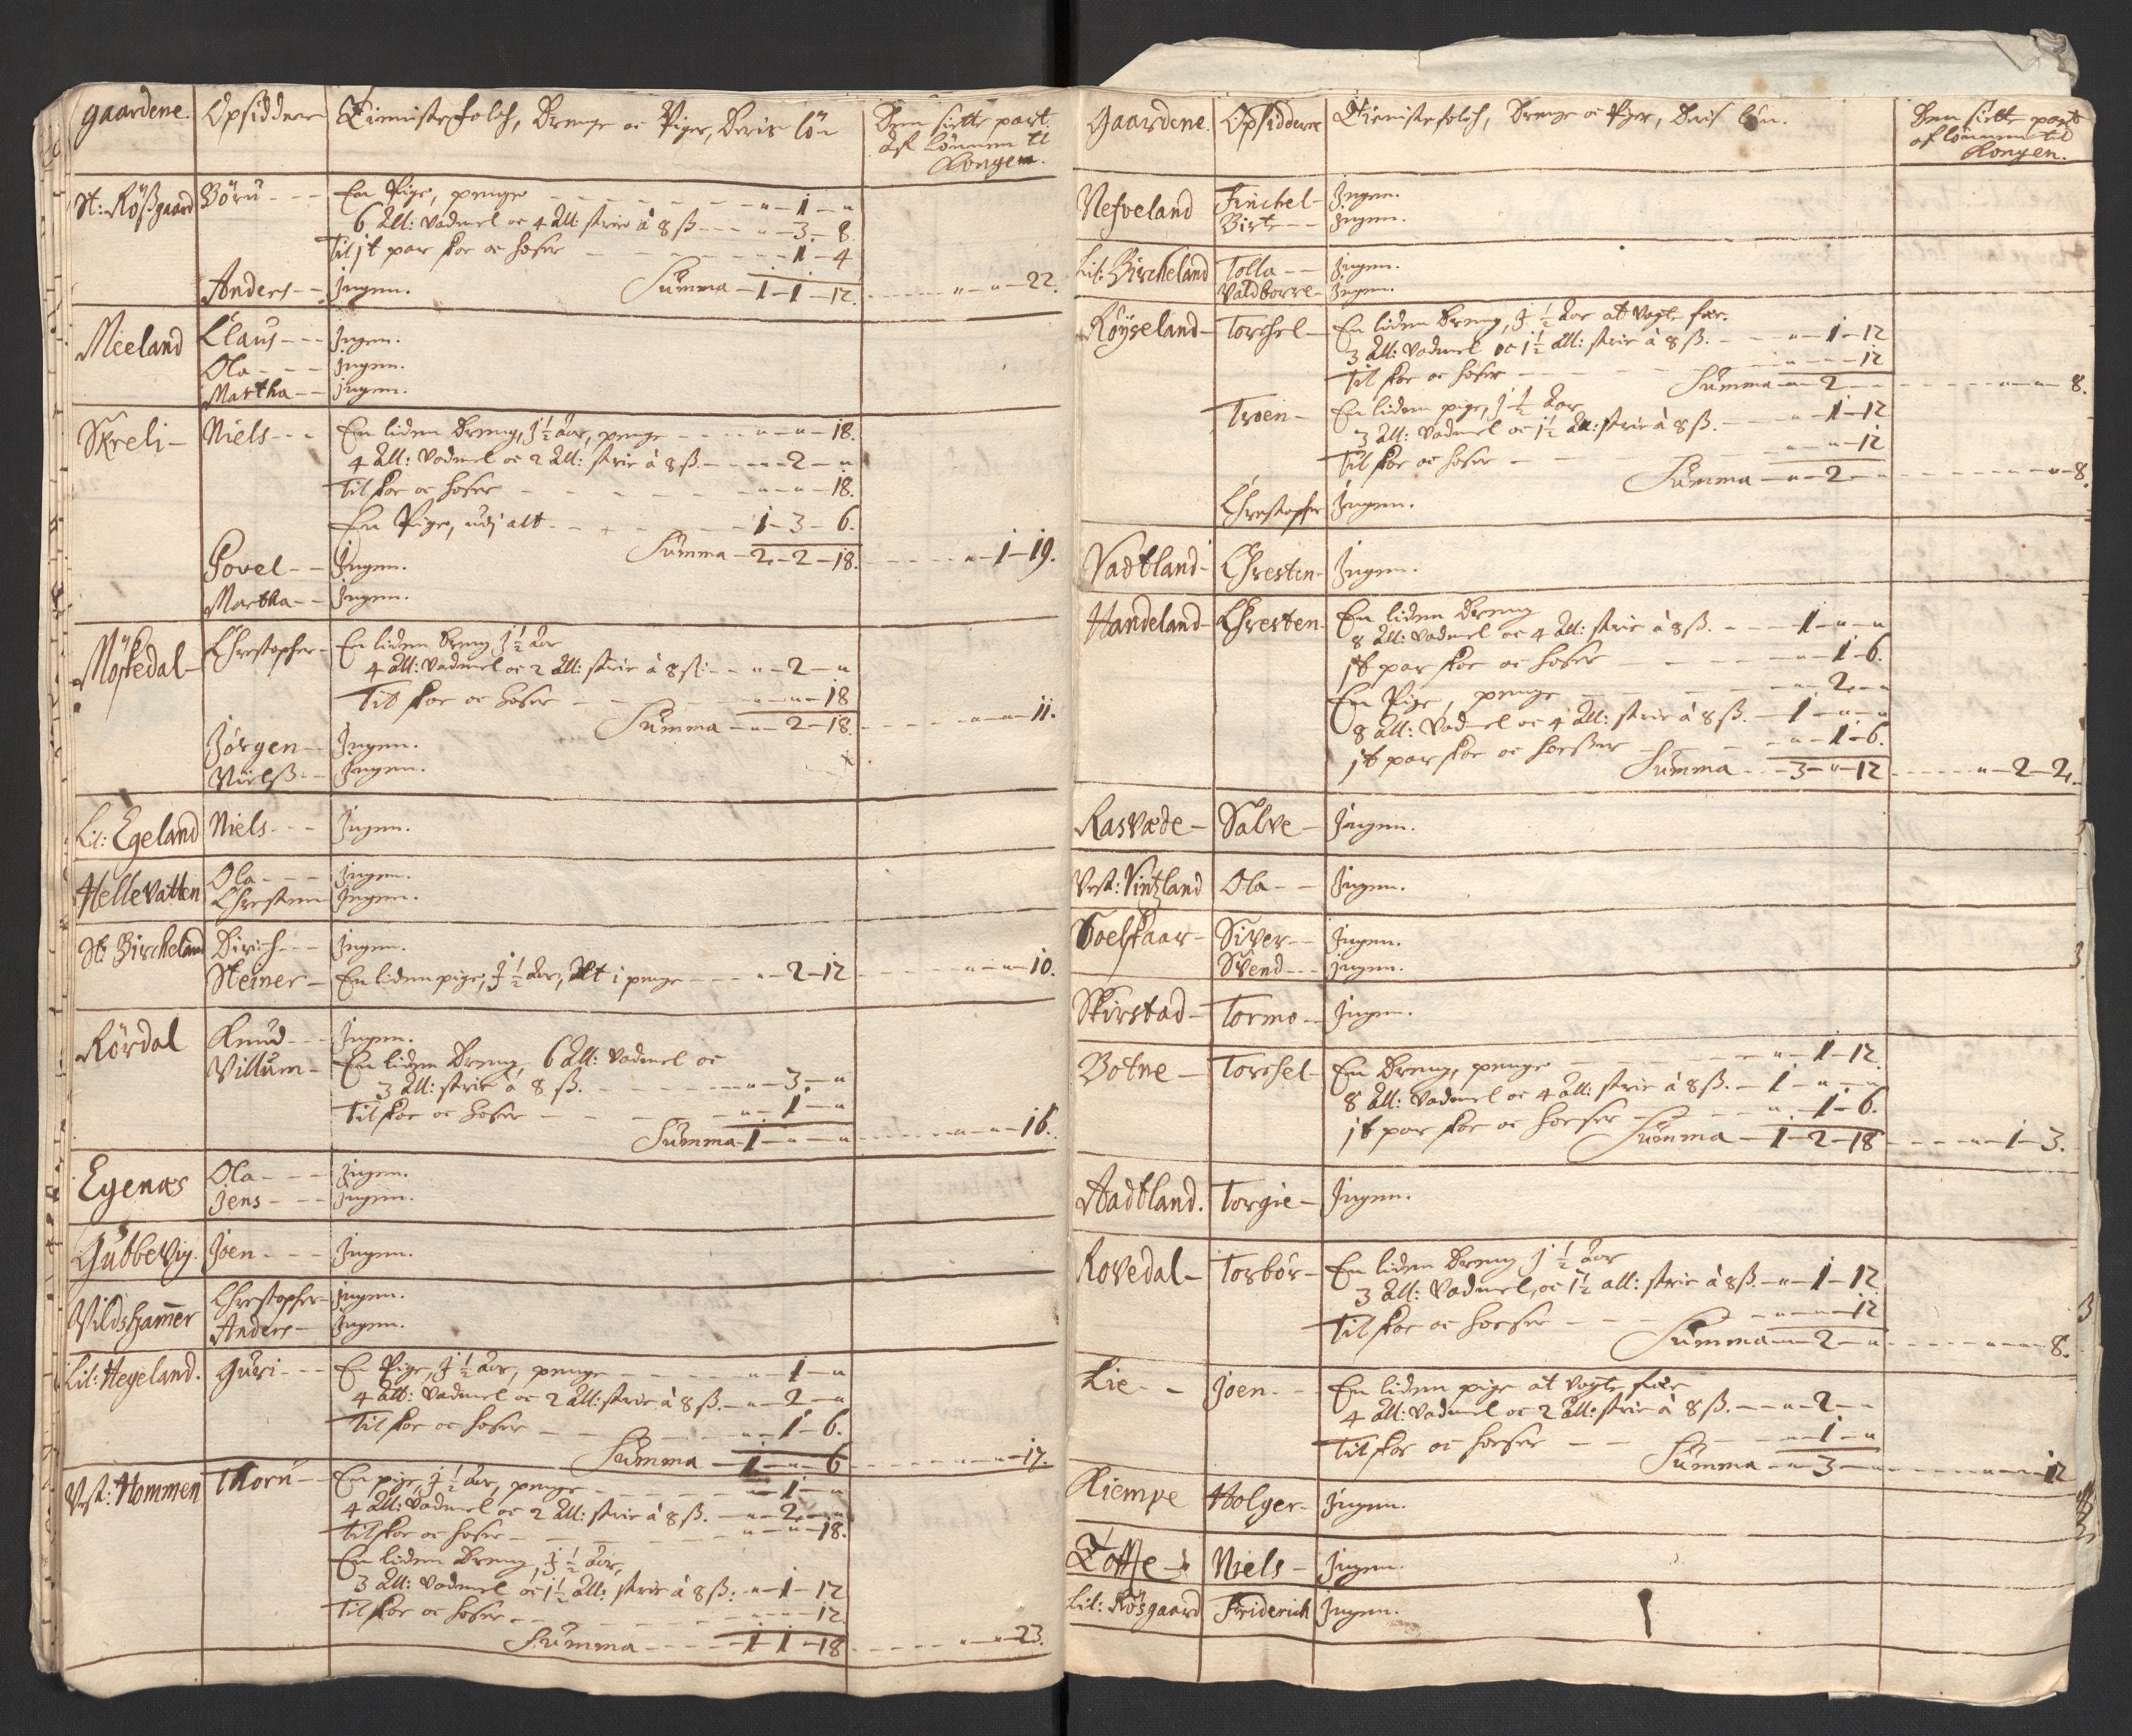 gaardene. Opsiddere Tienistefolch, Drenge oc Piger, Deris lön Den siette part af lönnen til Kongen.
St: Rößgaard Börü - - - En Pige, penge - - - " - 1 - "
6 All: vadmel oc 4 All: strie à 8 ß - - - " - 3 - 8.
Til it par skoe oc hoser - - - 1 - 4
Anders - - Jngen. Summa - 1 - 1 - 12. - - - " - " - 22.
Meeland Claus - - - Jngen.
Ola - - - Jngen.
Martha - - Jngen.
Skreli - Niels - - - En liden Dreng, J ½ Aar, penge - - - " - " - 18.
4 All: vadmel oc 2 All: strie à 8 ß. - - - " - 2 - "
Til skoe oc hoser - - - " - " - 18.
En Pige, udj alt - - - 1 - 3 - 6.
Summa - 2 - 2 - 18. - - - " - 1 - 19.
Povel - - Jngen.
Martha - - Jngen.
Möskedal - Christopher - En liden Dreng J ½ Aar
4 All: vadmel oc 2 All: strie à 8 ß: - - " - 2 - "
Til skoe oc hoser - - - " - " - 18
Summa - " - 2 - 18. - - - " - " - 11.
Jörgen - - Jngen.
Nielß - - Jngen.
Lil: Egeland Niels - - - Jngen.
Hellevatten Ola - - - Jngen.
Christen Jngen.
St: Bircheland Dirich - - - Jngen.
Steiner - En liden pige, J ½ Aar, Alt i penge - - - " - 2 - 12 - - - " - " - 10.
Rördal Knud - - - Jngen.
Villum - En liden Dreng, 6 All: vadmel oc
3 All: strie à 8 ß. - - - " - 3 - "
Til skoe oc hoser - - - " - 1 - "
Summa - 1 - " - " - - - " - " - 16.
Egenæs Ola - - - Jngen.
Jens - - - Jngen.
Gubbevig. Joen - - - Jngen.
Vildshammer Christopher - Jngen.
Anders - Jngen.
Lil: Hegeland. Guri - - - En Pige, J ½ Aar, penge - - - " - 1 - "
4 All: vadmel oc 2 All: strie à 8 ß. - " - 2 - "
Til skoe oc hoser - - - " - 1 - 6.
Summa - 1 - " - 6 - - - " - " - 17.
Vest: Hommen Thorü - - En pige, J ½ Aar, penge - - - " - 1 - "
4 All: vadmel oc 2 All: strie à 8 ß. - " - 2 - "
Til skoe oc hoser - - - " - " - 18.
En liden Dreng, J ½ Aar,
3 All: vadmel oc 1½ All: strie à 8 ß: - " - 1 - 12
Til skoe oc hoser - - - " - " - 12.
Summa - - - 1 - 1 - 18 - - - " - " - 23.
Gaardene. Opsiddere Tienistefolch, Drenge oc Piger, Deris lön. Den siette part af lönnen til Kongen.
Nefveland Finchel - Jngen.
Birte - - Jngen.
Lil: Bircheland Tolla - - Jngen.
Valdborre - Jngen.
Röyseland - Torchel - En liden Dreng, J ½ Aar at vogte fæe.
3 All: vadmel oc 1½ All: strie à 8 ß. - - - " - 1 - 12
Til skoe oc hoser - - - " - " - 12
Summa - " - 2 - " - - - " - " - 8.
Troen - En liden pige, J ½ Aar
3 All: vadmel oc 1½ All: strie à 8 ß. - - - " - 1 - 12
Til skoe oc hoser - - " - " - 12
Summa - " - 2 - " - - - " - " - 8.
Christopher Jngen.
Vadtland - Christen - Jngen.
Handeland - Christen - En liden Dreng
8 All: vadmel oc 4 All: strie à 8 ß. - - - 1 - " - "
it par skoe oc hoser - - - " - 1 - 6.
En Pige, penge - - - " - 2 - "
8 All: vadmel oc 4 All: strie à 8 ß. - 1 - " - "
it par skoe oc hoeser - - - " - 1 - 6.
Summa - - 3 - " - 12 - - - " - 2 - 2.
Rasvæde - Salve - Jngen.
Vest: Vintzland Ola - - Jngen.
Soelskaar - Siver - - Jngen.
Svend - - - Jngen.
Skirstad - Tormo - Jngen.
Botne - Torchel - En Dreng, penge - - - " - 1 - 12.
8 All: vadmel oc 4 All: strie à 8 ß. - 1 - " - "
it par skoe oc hoeser - - - " - 1 - 6.
Summa - 1 - 2 - 18 - - - " - 1 - 3.
Aadtland. Torgie - Jngen.
Rovedal - Torbör - En liden Dreng J ½ Aar
3 All: vadmel, oc 1½ all: strie à 8 ß. - " - 1 - 12.
Til skoe oc hoeser - - - " - " - 12
Summa - " - 2 - " - - - " - " - 8.
Lie - - Joen - - En liden pige at vogte fæe
4 All: vadmel oc 2 All: strie à 8 ß. - - " - 2 - "
Til skoe oc hoeser - - - " - 1 - "
Summa - " - 3 - " - - - " - " - 12
Kiempe Holger - Jngen.
Niels - Jngen.
Lil: Rösgaard Friderich Jngen.